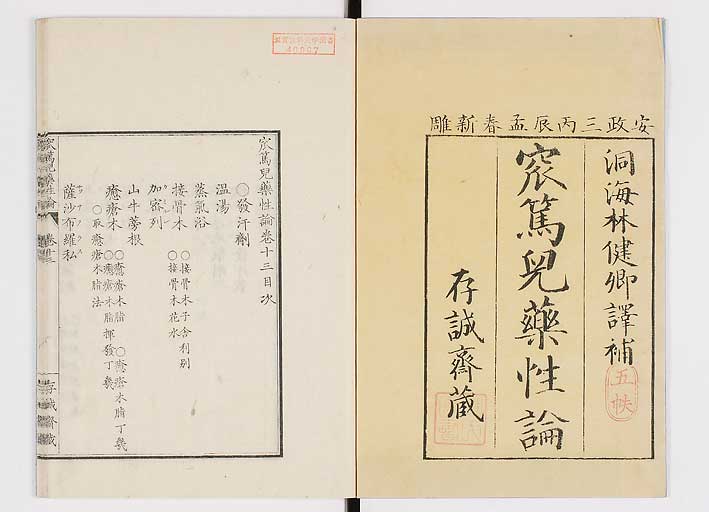 安政三丙辰孟春新雕
洞海林健卿譯補
五帙
窊篤兒藥性論
存誠齋藏
40007
窊篤兒藥性論卷十三目次
○發汗劑
溫湯
蒸氣浴
接骨木　○接骨木子舍利別　○接骨木花水
加密列
山牛蒡根
癒瘡木　○癒瘡木脂　○癒瘡木脂丁幾　○癒瘡木脂揮發丁幾
○取癒瘡木脂法
薩沙布羅私
窊篤兒藥性論　卷十三
存誠齋藏